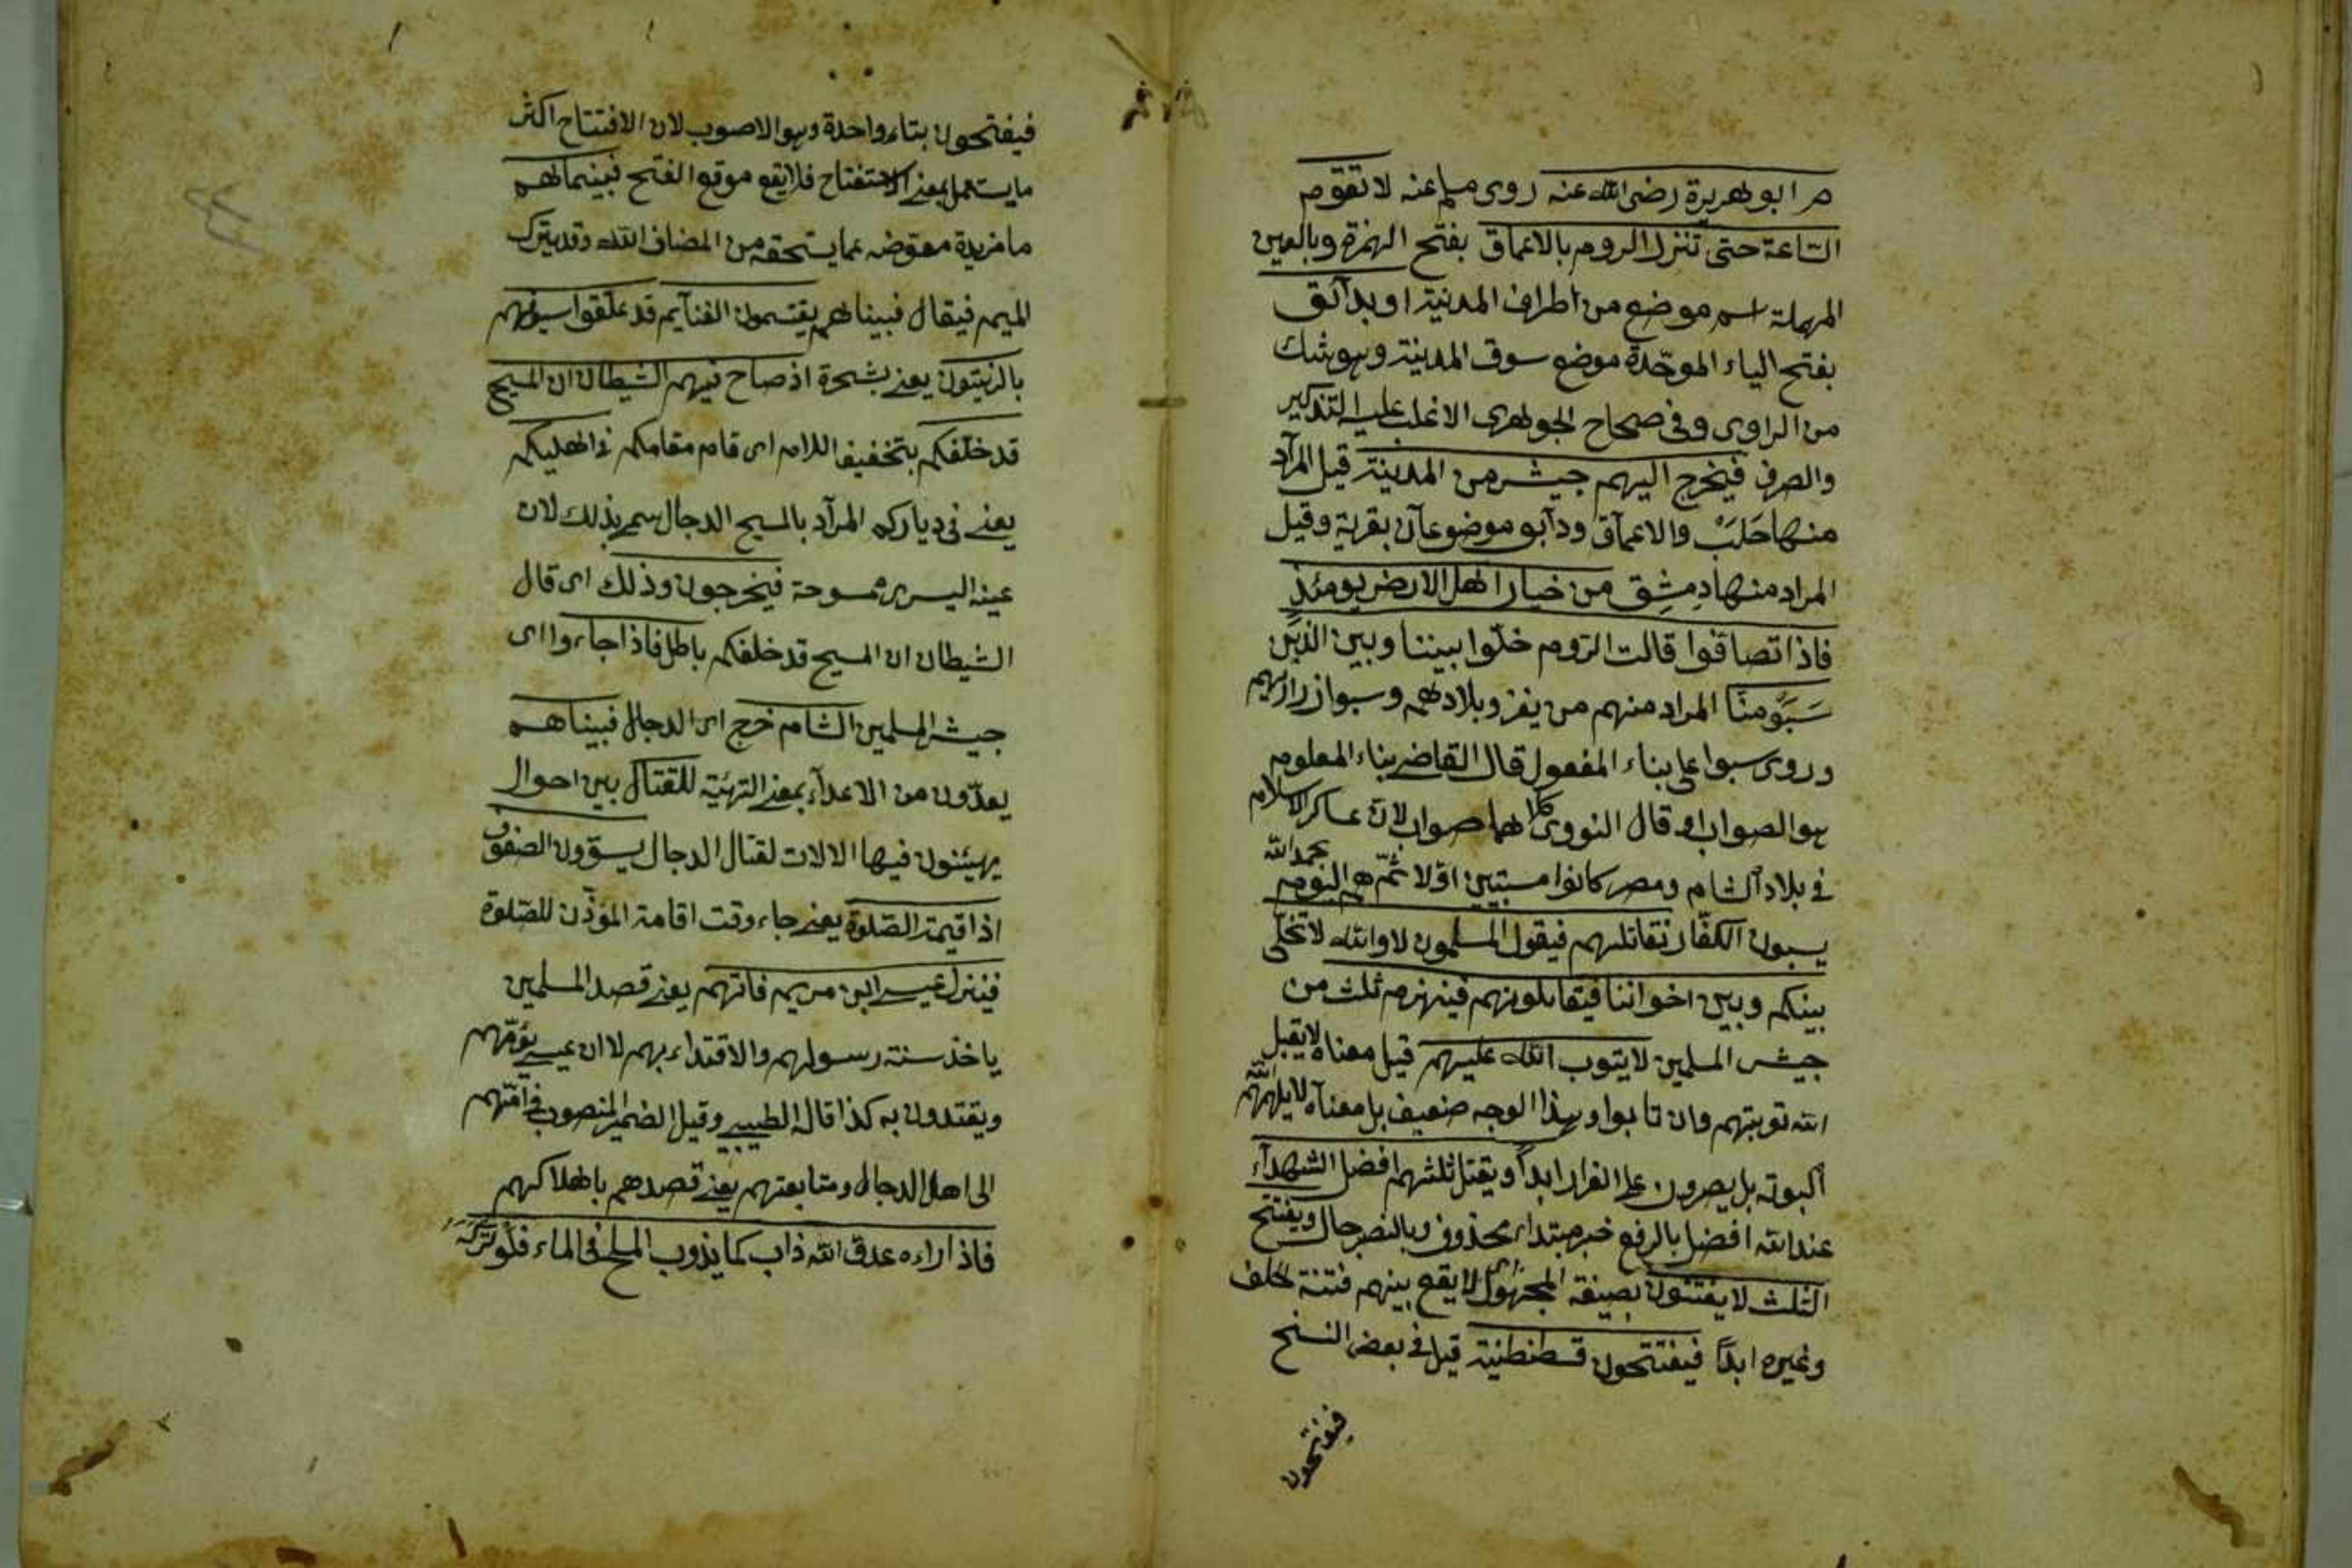 م ابو هريرة رضى الله عنه روى مسلم عنه لا تقوم
الساعة حتى تنزل الروم بالاعماق بفتح الهمزة وبالعين
المهملة اسم موضع من اطراف المدينة او بدابق
بفتح الباء الموحّدة موضع سوق المدينة وهو شك
من الراوى وفى صحاح الجوهرى الاغلب عليه التذكير
والصرف فيخرج اليهم جيش من المدينة قيل المراد
منها حَلَبْ والاعماق ودابق موضوعان بقربة وقيل
المراد منها دِمشِق من خيار اهل الارض يومئذٍ
فاذا تصافوا قالت الروم خلّوا بيننا وبين الذين
سَبَوْ منّا المراد منهم من يغزو بلادهم وسبوا ذراريهم
وروى سبوا على بناء المفعول قال القاضى بناء المعلوم
هو الصواب وقال النووى كلاهما صواب لان عساكر الاسلام
فى بلاد الشام ومصر كانوا مسبيين اوّلا ثمّ هم اليوم بحمد الله
يسبون الكفّار نقاتلهم فيقول المسلمون لا والله لا نخلّى
بينكم وبين اخواننا فيقاتلونهم فينهزم ثلث من
جيش المسلمين لا يتوب الله عليهم قيل معناه لا يقبل
الله توبتهم وان تابوا وهذا الوجه ضعيف بل معناه لا يلهمهم الله
التوبة بل يصرون على الفرار ابداً ويقتل ثلثهم افضل الشهداء
عند الله افضل بالرفع خبر مبتداء محذوف وبالنصب حال ويفتتح
الثلث لا يفتنون بصيغة المجهول اى لا يقع بينهم فتنة خلف
وغيره ابداً فيفتتحون قسطنطنية قيل فى بعض النسخ
فيفتحون
فيفتحون بتاء واحدة وهو الاصوب لان الافتتاح اكثر
ما يستعمل بمعنى الاستفتاح فلا يقع موقع الفتح فبينما هم
ما مزيدة معوّضه عما يستحقه من المضاف اليه وقد يترك
الميم فيقال فبينا هم يقتسمون الغنايم قد علّقوا سيوفهم
بالزيتون يعنى بشجرة اذ صاح فيهم الشيطان ان المسيح
قد خلفكم بتخفيف اللام اى قام مقامكم فى اهليكم
يعنى فى دياركم المراد بالمسيح الدجال سمى بذلك لان
عينه اليسرى ممسوحة فيخرجون وذلك اى قال
الشيطان ان المسيح قد خلفكم باطل فاذا جاءوا اى
جيش المسلمين الشام خرج اى الدجال فبينا هم
يعدّون من الاعداء بمعنى التهيّة للقتال بين احوال
يهيئون فيها الالات لقتال الدجال يسوّون الصفوف
اذ اقيمت الصلوة يعنى جاء وقت اقامة المؤذّن للصلوة
فينزل عيسى ابن مريم فامّهم يعنى قصد المسلمين
ياخذ سنة رسولهم والاقتداء بهم لا ان عيسى يؤمّهم
ويقتدون به كذا قال الطيبى وقيل الضمير المنصوب فى امّهم
الى اهل الدجال ومتابعتهم يعنى قصدهم باهلاكهم
فاذا راءه عدوّ الله ذاب كما يذوب الملح فى الماء فلو تركه